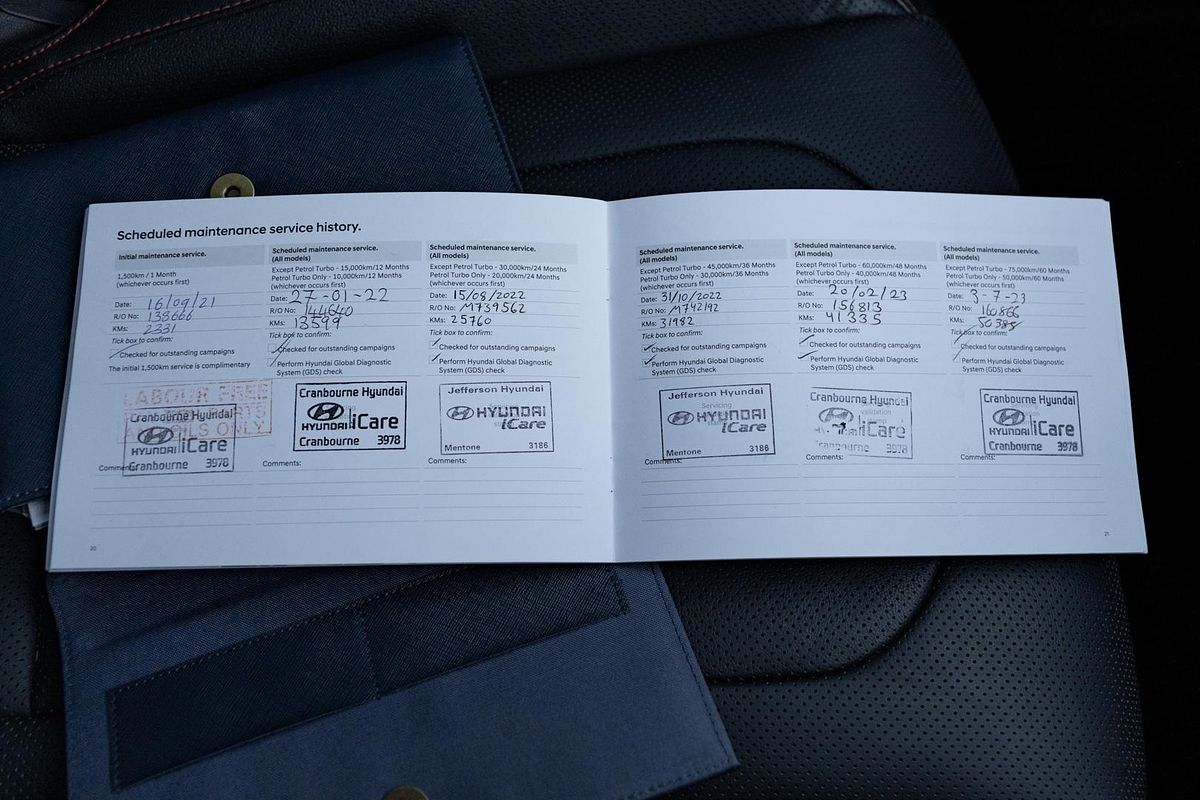 Scheduled maintenance service history.
Initial maintenance service.
1,500km / 1 Month
(whichever occurs first)
Date: 16/09/21
R/O No: 138666
KMs: 2331
Tick box to confirm:
Checked for outstanding campaigns
The initial 1,500km service is complimentary
LABOUR FREE
ONLY
Cranbourne Hyundai
HYUNDAI iCare
Cranbourne 3978
Comments:
Scheduled maintenance service.
(All models)
Except Petrol Turbo - 15,000km/12 Months
Petrol Turbo Only - 10,000km/12 Months
(whichever occurs first)
Date: 27-01-22
R/O No: 144640
KMs: 13599
Tick box to confirm:
Checked for outstanding campaigns
Perform Hyundai Global Diagnostic
System (GDS) check
Cranbourne Hyundai
HYUNDAI iCare
Cranbourne 3978
Comments:
Scheduled maintenance service.
(All models)
Except Petrol Turbo - 30,000km/24 Months
Petrol Turbo Only - 20,000km/24 Months
(whichever occurs first)
Date: 15/08/2022
R/O No: M739562
KMs: 25760
Tick box to confirm:
Checked for outstanding campaigns
Perform Hyundai Global Diagnostic
System (GDS) check
Jefferson Hyundai
HYUNDAI
iCare
Mentone 3186
Comments:
20
Scheduled maintenance service.
(All models)
Except Petrol Turbo - 45,000km/36 Months
Petrol Turbo Only - 30,000km/36 Months
(whichever occurs first)
Date: 31/10/2022
R/O No: M742192
KMs: 31982
Tick box to confirm:
Checked for outstanding campaigns
Perform Hyundai Global Diagnostic
System (GDS) check
Jefferson Hyundai
Servicing
HYUNDAI
iCare
Mentone 3186
Comments:
Scheduled maintenance service.
(All models)
Except Petrol Turbo - 60,000km/48 Months
Petrol Turbo Only - 40,000km/48 Months
(whichever occurs first)
Date: 20/02/23
R/O No: 156813
KMs: 41335
Tick box to confirm:
Checked for outstanding campaigns
Perform Hyundai Global Diagnostic
System (GDS) check
Cranbourne Hyundai
validation
iCare
3978
Comments:
Scheduled maintenance service.
(All models)
Except Petrol Turbo - 75,000km/60 Months
Petrol Turbo Only - 50,000km/60 Months
(whichever occurs first)
Date: 3-7-23
R/O No: 160866
KMs: 50385
Tick box to confirm:
Checked for outstanding campaigns
Perform Hyundai Global Diagnostic
System (GDS) check
Cranbourne Hyundai
HYUNDAI iCare
Cranbourne 3978
Comments:
21